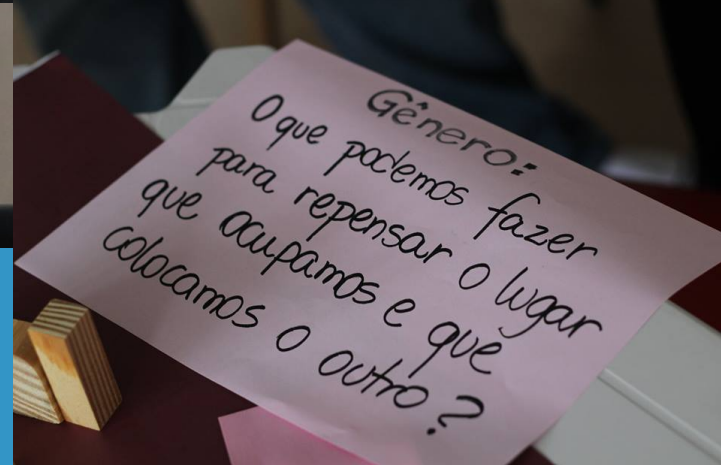 Gênero:
O que podemos fazer
para repensar o lugar
que ocupamos e que
colocamos o outro?